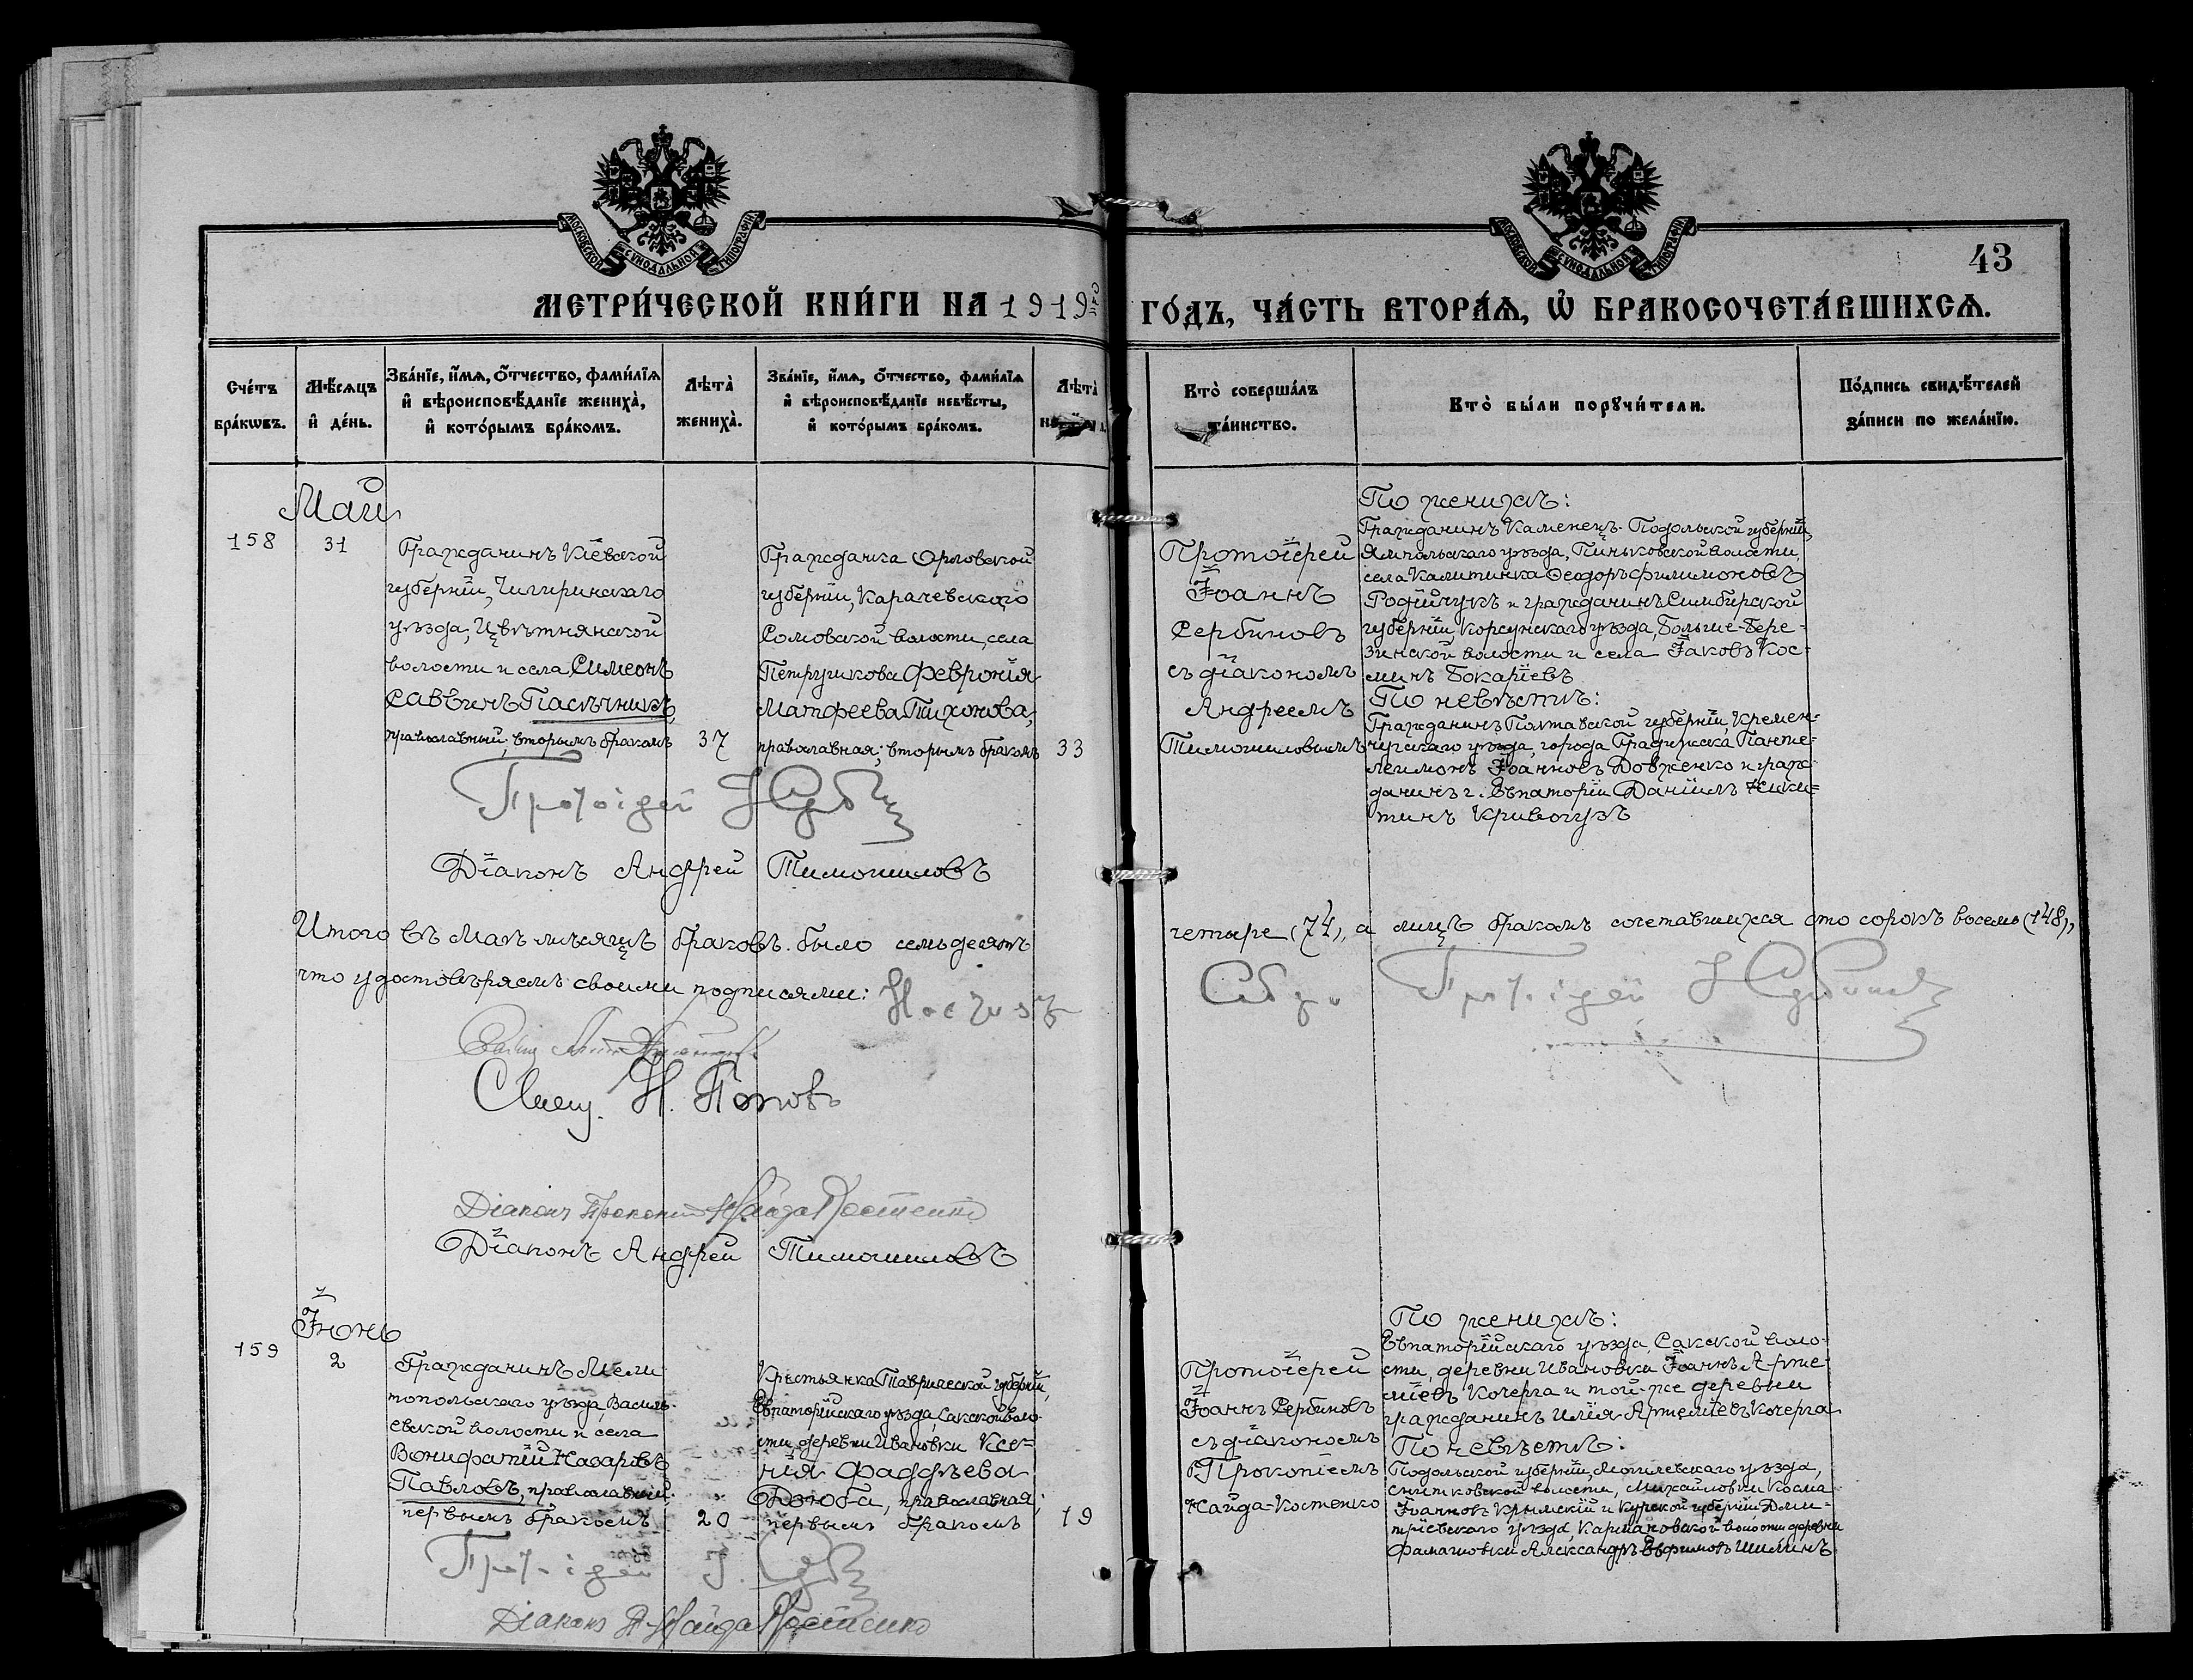 МОСКОВСКОЙ СѴНОДАЛЬНОЙ ТИПОГРАФІИ
МОСКОВСКОЙ СѴНОДАЛЬНОЙ ТИПОГРАФІИ
43
МЕТРИ́ЧЕСКОЙ КНИ́ГИ НА 1919 ГО́ДЪ, ЧА́СТЬ ВТОРА́Ѧ, Ѽ БРАКОСОЧЕТА́ВШИХСѦ.
Сче́тъ бра́кѡвъ.
Мѣ́сяцъ и҆ де́нь.
Зва́нїе, и҆́мѧ, ѻ҆́тчество, фами́лїѧ
и҆ вѣроисповѣ́данїе жениха̀,
и҆ кото́рымъ бра́комъ.
Лѣта̀ жениха̀.
Зва́нїе, и҆́мѧ, ѻ҆́тчество, фами́лїѧ
и҆ вѣроисповѣ́данїе невѣ́сты,
и҆ кото́рымъ бра́комъ.
Лѣта̀
Кто̀ соверша́лъ
та́инство.
Кто̀ бы́ли порꙋчи́тели.
По́дпись свидѣ́телей
за́писи по жела́нїю.
Май
158
31
Гражданинъ Кіевской
губерніи, Чигиринскаго
уѣзда, Цвѣтнянской
волости и села Симеонъ
Саввинъ Пасѣчникъ,
православный, вторымъ бракомъ
37
Гражданка Орловской
губерніи, Карачевскаго
Сомовской волости, села
Петрушкова Февронія
Матфеева Тихонова,
православная; вторымъ бракомъ
33
Протоіерей
Іоаннъ
Сербиновъ
съ діакономъ
Андреемъ
Тимошиловымъ
По женихѣ:
Гражданинъ Каменецъ-Подольской губерніи,
Ямпольскаго уѣзда, Пиньковской волости,
села Калитинка Ѳеодоръ Филимоновъ
Родійчукъ и гражданинъ Симбирской
губерніи, Корсунскаго уѣзда, Больше-Бере-
зинской волости и села Іаковъ Кос-
минъ Бокаріевъ
По невѣстѣ:
Гражданинъ Полтавской губерніи, Кремен-
чугскаго уѣзда, города Градижска Панте-
леимонъ Іоанновъ Довженко и граж-
данинъ г. Евпаторіи Даніилъ Ники-
тинъ Кривогузъ
Протоіерей І Серб
Діаконъ Андрей Тимошиловъ
Итого въ Маѣ мѣсяцѣ браковъ было семьдесятъ четыре (74), а лицъ бракомъ сочетавшихся сто сорокъ восемь (148),
что удостовѣряемъ своими подписями: Настоят Собора Протоіерей І Сербиновъ
Свящ. Н. Поповъ
Діаконъ Прокопій Найда Костенко
Діаконъ Андрей Тимошиловъ
Іюнь
159
2
Гражданинъ Мели-
топольскаго уѣзда, Василь-
евской волости и села
Вонифатій Назаріевъ
Павловъ, православный;
первымъ бракомъ
20
Крестьянка Таврической губерніи,
Евпаторійскаго уѣзда, Сакской воло-
сти, деревни Ивановки Ксе-
нія Фаддѣева
Дзюба, православная;
первымъ бракомъ
19
Протоіерей
Іоаннъ Сербиновъ
съ діакономъ
Прокопіемъ
Найда-Костенко
По женихѣ:
Евпаторійскаго уѣзда, Сакской воло-
сти, деревни Ивановки Іоаннъ Арте-
міевъ Кочерга и той-же деревни
гражданинъ Илія Артеміевъ Кочерга
По невѣстѣ:
Подольской губерніи, Могилевскаго уѣзда,
Снитковской волости, Михайловки Косма
Іоанновъ Крымскій и Курской губерніи, Дми-
тріевскаго уѣзда, Кармановской волости деревни
Фаташовки Александръ Евфимовъ Шилинъ
Протоіерей І. Серб
Діаконъ П. Найда Костенко